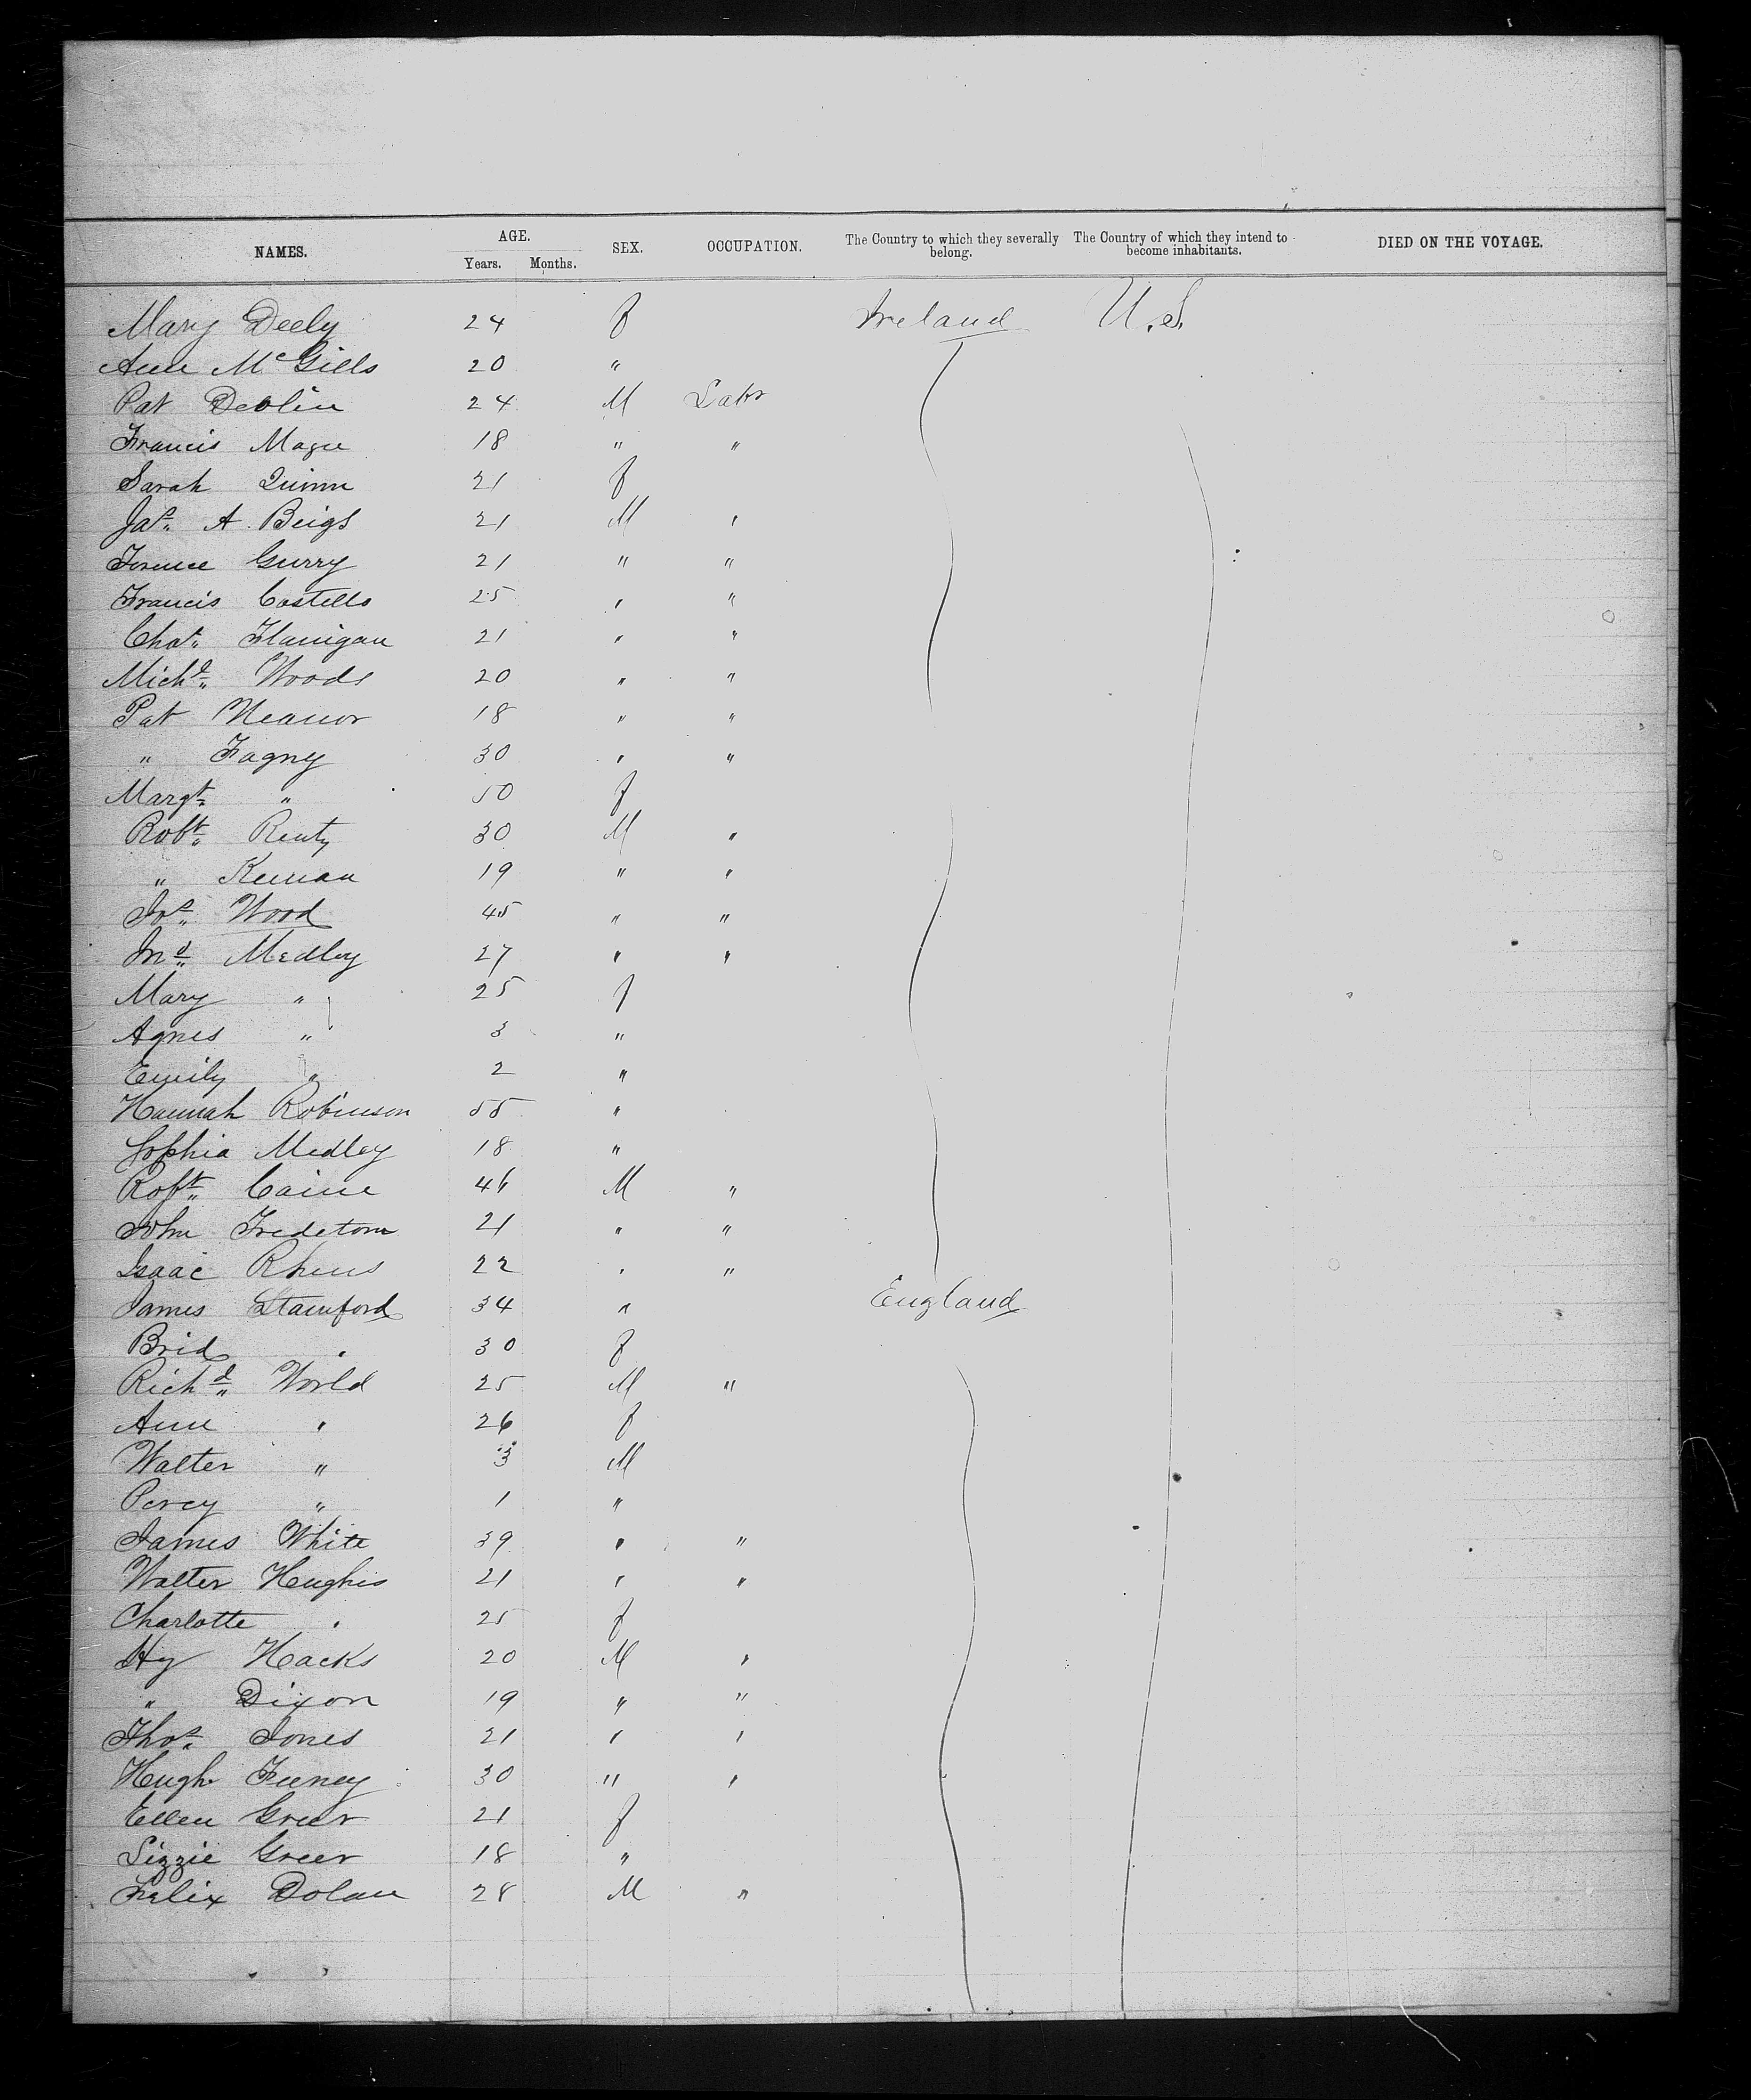 NAMES. AGE. Years. Months. SEX. OCCUPATION. The Country to which they severally belong. The Country of which they intend to become inhabitants. DIED ON THE VOYAGE.
Mary Deely 24 f Ireland U.S.
Ann McGills 20 "
Pat Devlin 24 M Labr
Francis Magee 18 " "
Sarah Quinn 21 f
Jas. A. Beigs 21 M "
Terence Gurry 21 " "
Francis Costello 25 " "
Chas. Flanigan 21 " "
Michl. Woods 20 " "
Pat 18 " "
" Fagny 30 " "
Margt. " 50 f
Robt. Renty 30 M "
" Kernan 19 " "
Jos. Wood 45 " "
Jno. Medley 27 " "
Mary " 25 f
Agnes " 3 "
Emily " 2 "
Hannah Robinson 55 "
Sophia Medley 18 "
Robt. Caine 46 M "
John 21 " "
Isaac Rhens 22 " "
James Stamford 34 " England
Brid " 30 f
Richd. World 25 M "
Ann " 26 f
Walter " 3 M
Percy " 1 "
James White 39 " "
Walter Hughes 21 " "
Charlotte " 25 f
Hy Hacks 20 M "
" Dixon 19 " "
Thos. Jones 21 " "
Hugh Feeney 30 " "
Ellen Greer 21 f
Lizzie Greer 18 "
Felix Dolan 28 M "